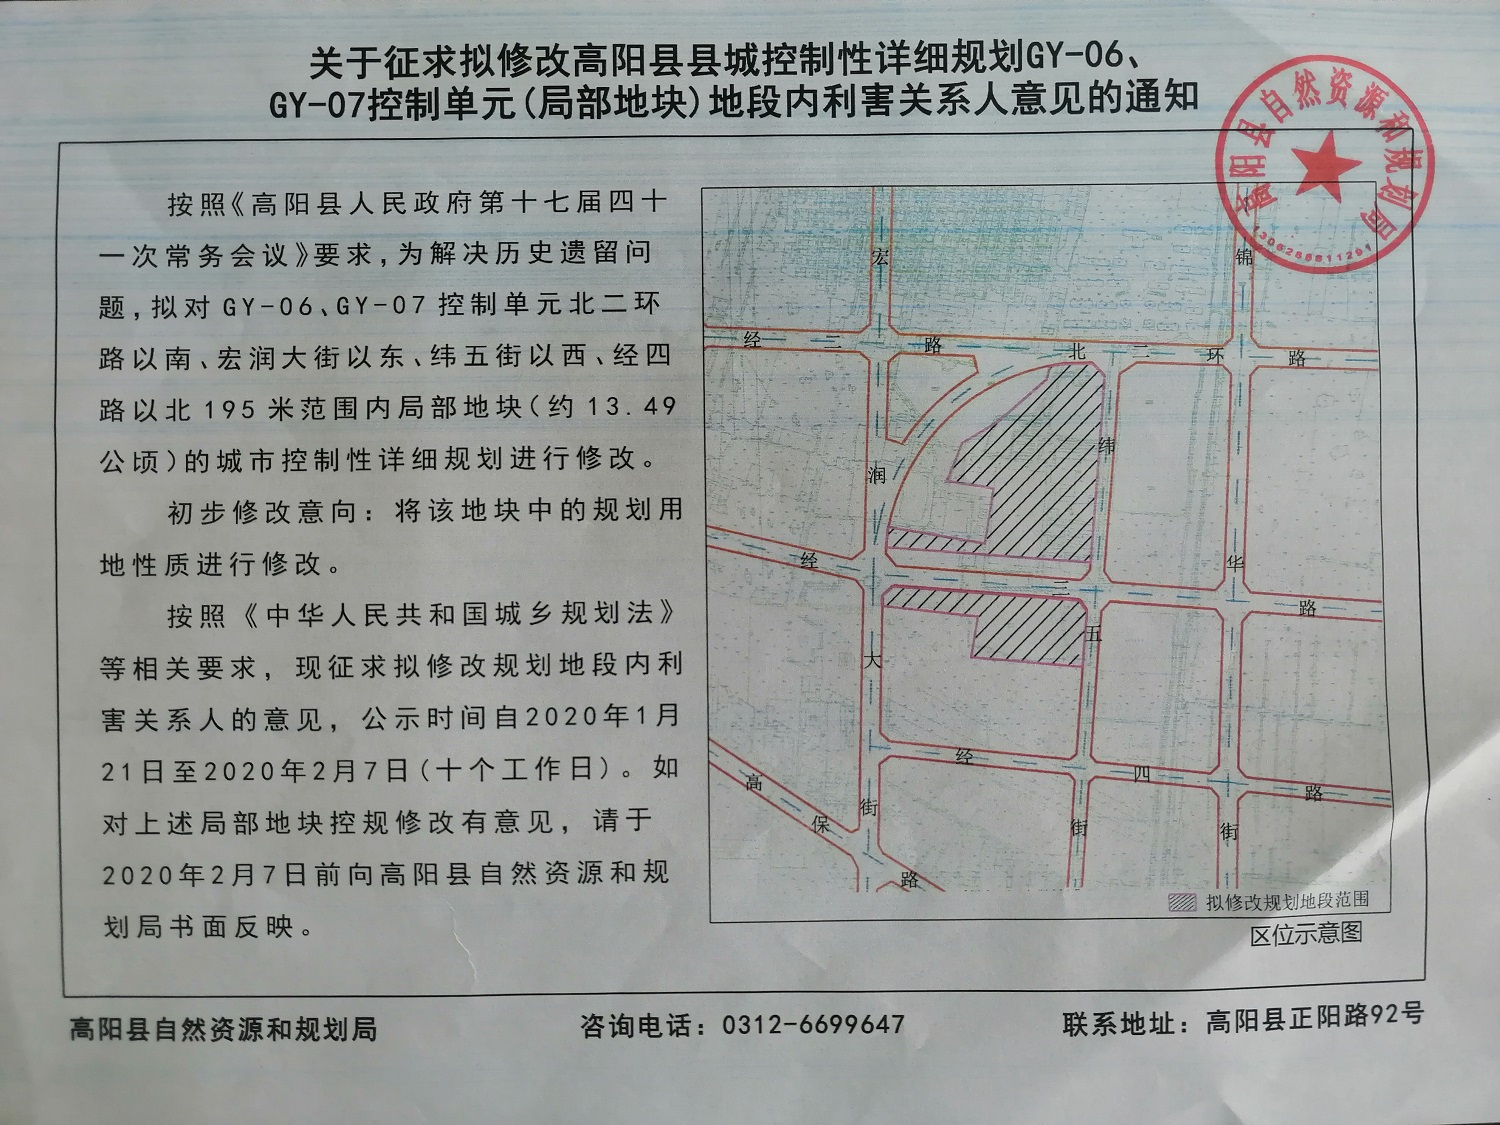 关于征求拟修改高阳县县城控制性详细规划GY-06、
GY-07控制单元(局部地块)地段内利害关系人意见的通知
高阳县自然资源和规划局
按照《高阳县人民政府第十七届四十
一次常务会议》要求,为解决历史遗留问
题,拟对GY-06、GY-07控制单元北二环
路以南、宏润大街以东、纬五街以西、经四
路以北195米范围内局部地块(约13.49
公顷)的城市控制性详细规划进行修改。
初步修改意向：将该地块中的规划用
地性质进行修改。
按照《中华人民共和国城乡规划法》
等相关要求，现征求拟修改规划地段内利
害关系人的意见，公示时间自2020年1月
21日至2020年2月7日(十个工作日)。如
对上述局部地块控规修改有意见，请于
2020年2月7日前向高阳县自然资源和规
划局书面反映。
宏润大街
锦华街
经二路
北二环路
纬五街
经三路
经四路
高保路
拟修改规划地段范围
区位示意图
高阳县自然资源和规划局
咨询电话：0312-6699647
联系地址：高阳县正阳路92号